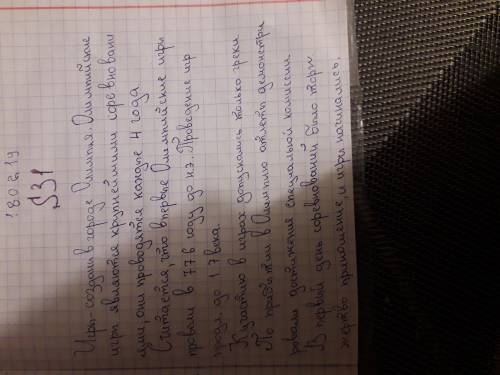 180 6.19
§31
Игры-созданы в городе Олимпия. Олимпийские
игры являются крупнейшими соревновани
ями, они проводятся каждые 4 года
Считается, что впервые Олимпийские игры
провели в 776 году до н.э. Проведение игр
прод. до 17 века.
К участию в играх допускались только греки
По прибытии в Олимпию атлеты демонстри
ровали достижения специальной комиссии.
В первый день соревнований было торж.
жертво приношение, и игры начинались.